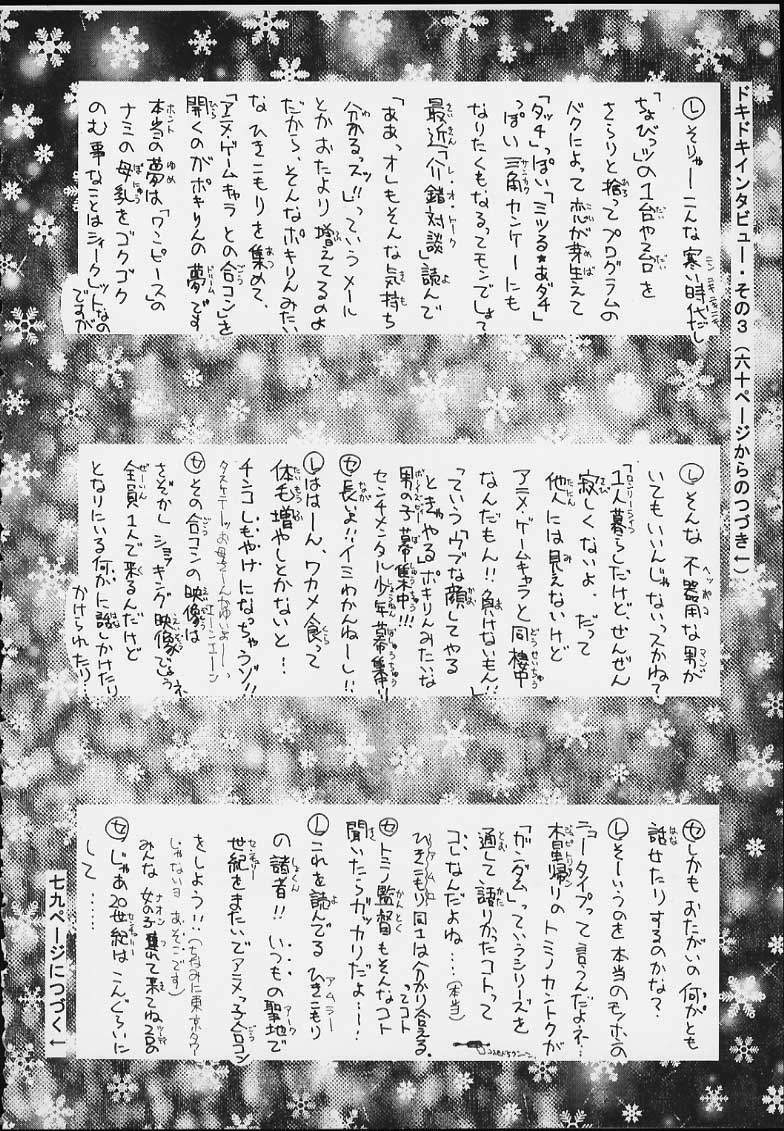 ドキドキインタビュー・その3（六十ページからのつづき←）
Ⓛそりゃーこんな寒い時代だし
「ちょびっツ」の1台や2台を
さらりと捨ってプログラムの
バグによって恋が芽生えて
「タッチ」っぽい「ミツる★あダチ」
っぽい三角カンケーにも
なりたくもなるってモンでしょ？
最近「介錯対談」読んで
「ああっオレもそんな気持ち
分かるっスッ!!」っていうメール
とかおたより増えてるのよ
だから、そんなポキりんみたい
なひきこもりを集めて、
「アニメ・ゲームキャラとの合コン」を
開くのがポキりんの夢です
本当の夢は「ワンピース」の
ナミの母乳をゴクゴク
のむ事なことはシィークレットなの
ですが
Ⓛそんな不器用な男が
いてもいいんじゃないってかね？
「1人暮らしだけど、ぜんぜん
寂しくないよ、だって
他人には見えないけど
アニメ・ゲームキャラと同棲中
なんだもん!!負けないもん!!」
っていう「ウブな顔してやる
ときゃやる」ポキりんみたいな
男の子募集中!!!
センチメンタル少年募集中!!
Ⓣ長いよ!!イミわかんねーし!!
Ⓛははーん、ワカメ食って
体毛増やしとかないと…
チンコしもやけになっちゃうゾ!!
Ⓣその合コンの映像は
さぞかしショッキング映像でしょうネ、
全員1人で来るんだけど
となりにいる何かに話しかけたり
かけられたり…
Ⓣしかもおたがいの何かとも
話せたりするのかな？
Ⓛそーいうのを本当のモノホンの
ニュータイプって言うんだよネ…
木星帰りのトミノカントクが
「ガンダム」っていうシリーズを
通して語りたかったコトって
コレなんだよね…（本当）
ひきこもり同士は分かり合える。
ってコト
Ⓣトミノ監督もそんなコト
聞いたらガッカリだよ……
Ⓛこれを読んでるひきこもり
の諸者!!いつもの聖地で
世紀をまたいでアニメっ子合コン
をしよう!!（ちなみに東京タワー
じゃないヨあそこです）
みんな女の子連れて来てね
Ⓣじゃあ20世紀はこんぐらいに
して……
七九ページにつづく←